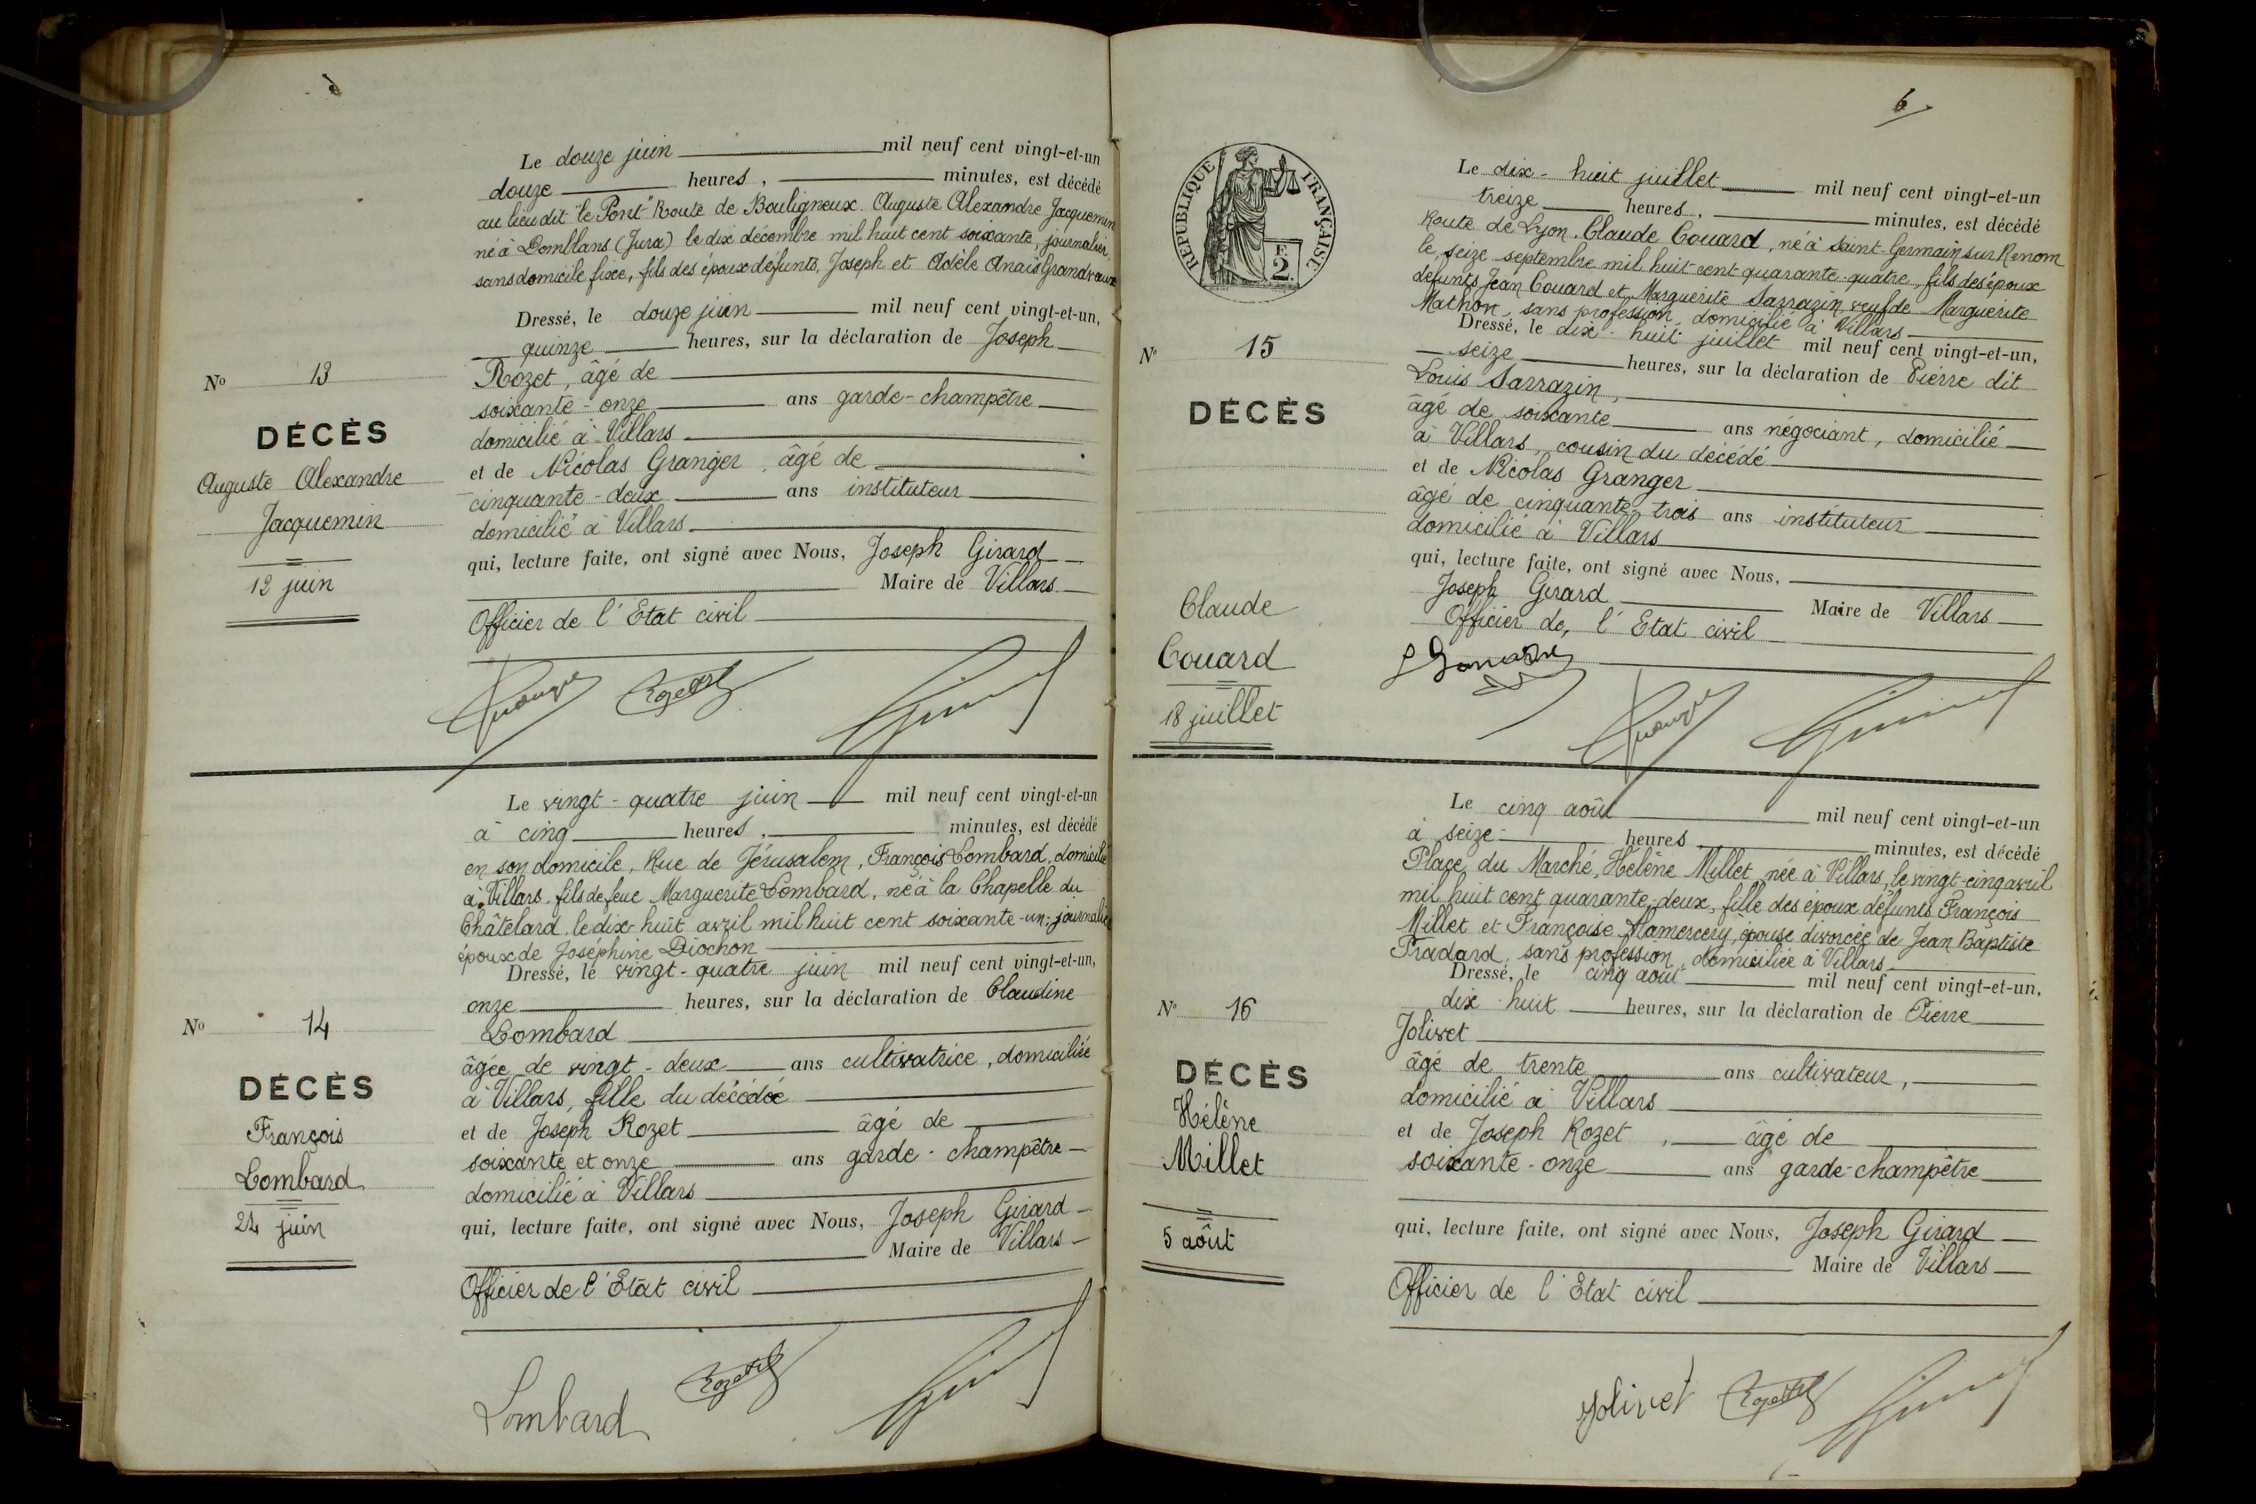 Le douze juin mil neuf cent vingt-et-un
douze heures, minutes, est décédé
au lieu dit "le Pont" Route de Bouligneux. Auguste Alexandre Jacquemin
né à Domblans (Jura) le dix décembre mil huit cent soixante, journalier,
sans domicile fixe, fils des époux défunts, Joseph et Adèle Anaïs Grandvaux
Dressé, le douze juin mil neuf cent vingt-et-un,
quinze heures, sur la déclaration de Joseph
Rozet, âgé de
soixante-onze ans garde-champêtre
domicilié à Villars
et de Nicolas Granger, âgé de
cinquante-deux ans instituteur
domicilié à Villars
qui, lecture faite, ont signé avec Nous, Joseph Girard
Maire de Villars
Officier de l'Etat civil
No 13
DÉCÈS
Auguste Alexandre
Jacquemin
12 juin
Granger Rozet Girard
Le vingt-quatre juin mil neuf cent vingt-et-un
à cinq heures, minutes, est décédé
en son domicile, Rue de Jérusalem, François Lombard, domicilié
à Villars, fils de feue Marguerite Lombard, né à la Chapelle du
Châtelard, le dix-huit avril mil huit cent soixante-un; journalier
époux de Joséphine Diochon
Dressé, le vingt-quatre juin mil neuf cent vingt-et-un,
onze heures, sur la déclaration de Claudine
Lombard
âgée de vingt-deux ans cultivatrice, domiciliée
à Villars, fille du décédée
et de Joseph Rozet âgé de
soixante et onze ans garde-champêtre
domicilié à Villars
qui, lecture faite, ont signé avec Nous, Joseph Girard
Maire de Villars
Officier de l'Etat civil
No 14
DÉCÈS
François
Lombard
24 juin
Lombard Rozet Girard
6
RÉPUBLIQUE FRANÇAISE
E
2
Le dix-huit juillet mil neuf cent vingt-et-un
treize heures, minutes, est décédé
Route de Lyon, Claude Couard, né à Saint-Germain sur Renom
le seize septembre mil huit cent quarante-quatre, fils des époux
défunts Jean Couard et Marguerite Sarrazin veuf de Marguerite
Mathon, sans profession, domicilié à Villars
Dressé, le dix-huit juillet mil neuf cent vingt-et-un,
seize heures, sur la déclaration de Pierre dit
Louis Sarrazin,
âgé de soixante ans négociant, domicilié
à Villars, cousin du décédé
et de Nicolas Granger
âgé de cinquante-trois ans instituteur
domicilié à Villars
qui, lecture faite, ont signé avec Nous,
Joseph Girard Maire de Villars
Officier de l'Etat civil
No 15
DÉCÈS
Claude
Couard
18 juillet
Granger Girard
Le cinq août mil neuf cent vingt-et-un
à seize heures, minutes, est décédé
Place du Marché, Hélène Millet, née à Villars, le vingt-cinq avril
mil huit cent quarante-deux, fille des époux défunts François
Millet et Françoise Mamercery, épouse divorcée de Jean Baptiste
Pradard, sans profession, domiciliée à Villars
Dressé, le cinq août mil neuf cent vingt-et-un,
dix huit heures, sur la déclaration de Pierre
Jolivet
âgé de trente ans cultivateur,
domicilié à Villars
et de Joseph Rozet, âgé de
soixante-onze ans garde-champêtre
qui, lecture faite, ont signé avec Nous, Joseph Girard
Maire de Villars
Officier de l'Etat civil
No 16
DÉCÈS
Hélène
Millet
5 août
Jolivet Rozet Girard